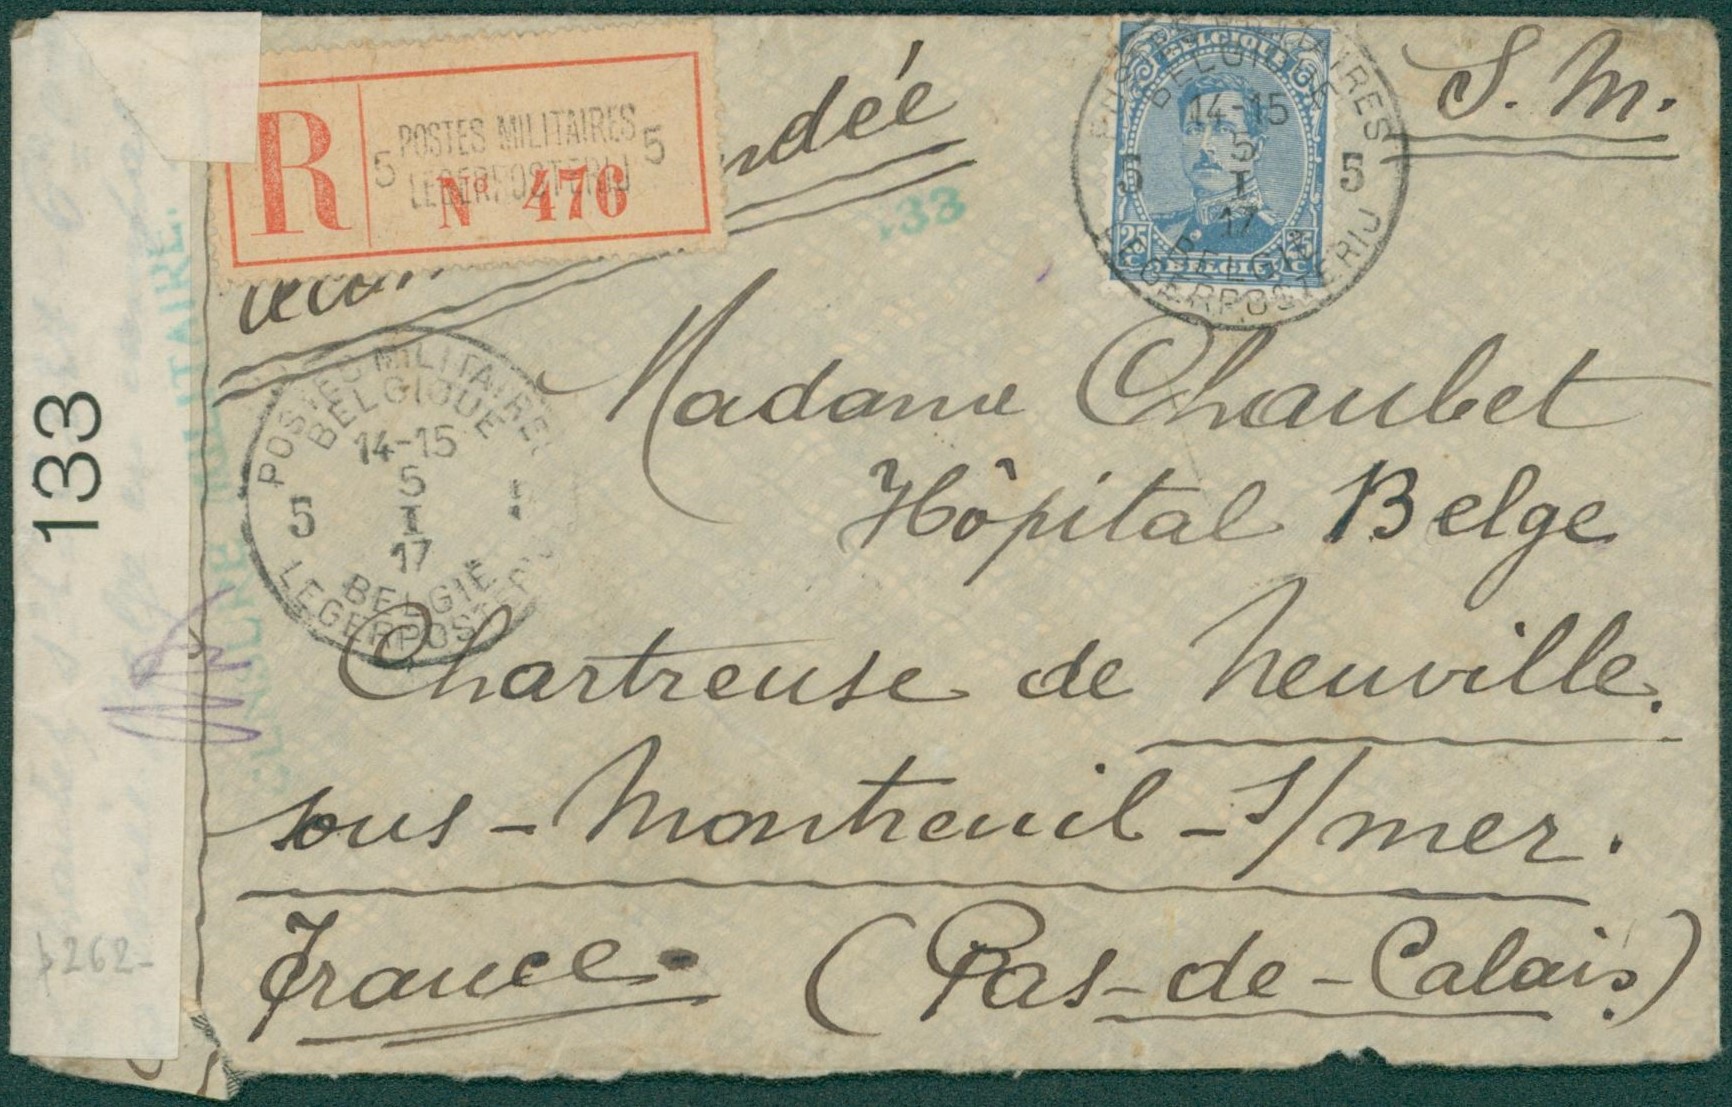 R
5 POSTES MILITAIRES 5
LEGERPOSTERIJ
Nº 476
ndée
S. M.
BELGIQUE
25 C
25 C
BELGIË
POSTES MILITAIRES
BELGIQUE
14-15
5
I
17
5 5
BELGIË
LEGERPOSTERIJ
133
133
POSTES MILITAIRES
BELGIQUE
14-15
5
I
17
5
BELGIË
LEGERPOSTERIJ
Madame Chaubet
Hôpital Belge
Chartreuse de Neuville.
sous - Montreuil - s/mer.
France. (Pas-de-Calais)
262-